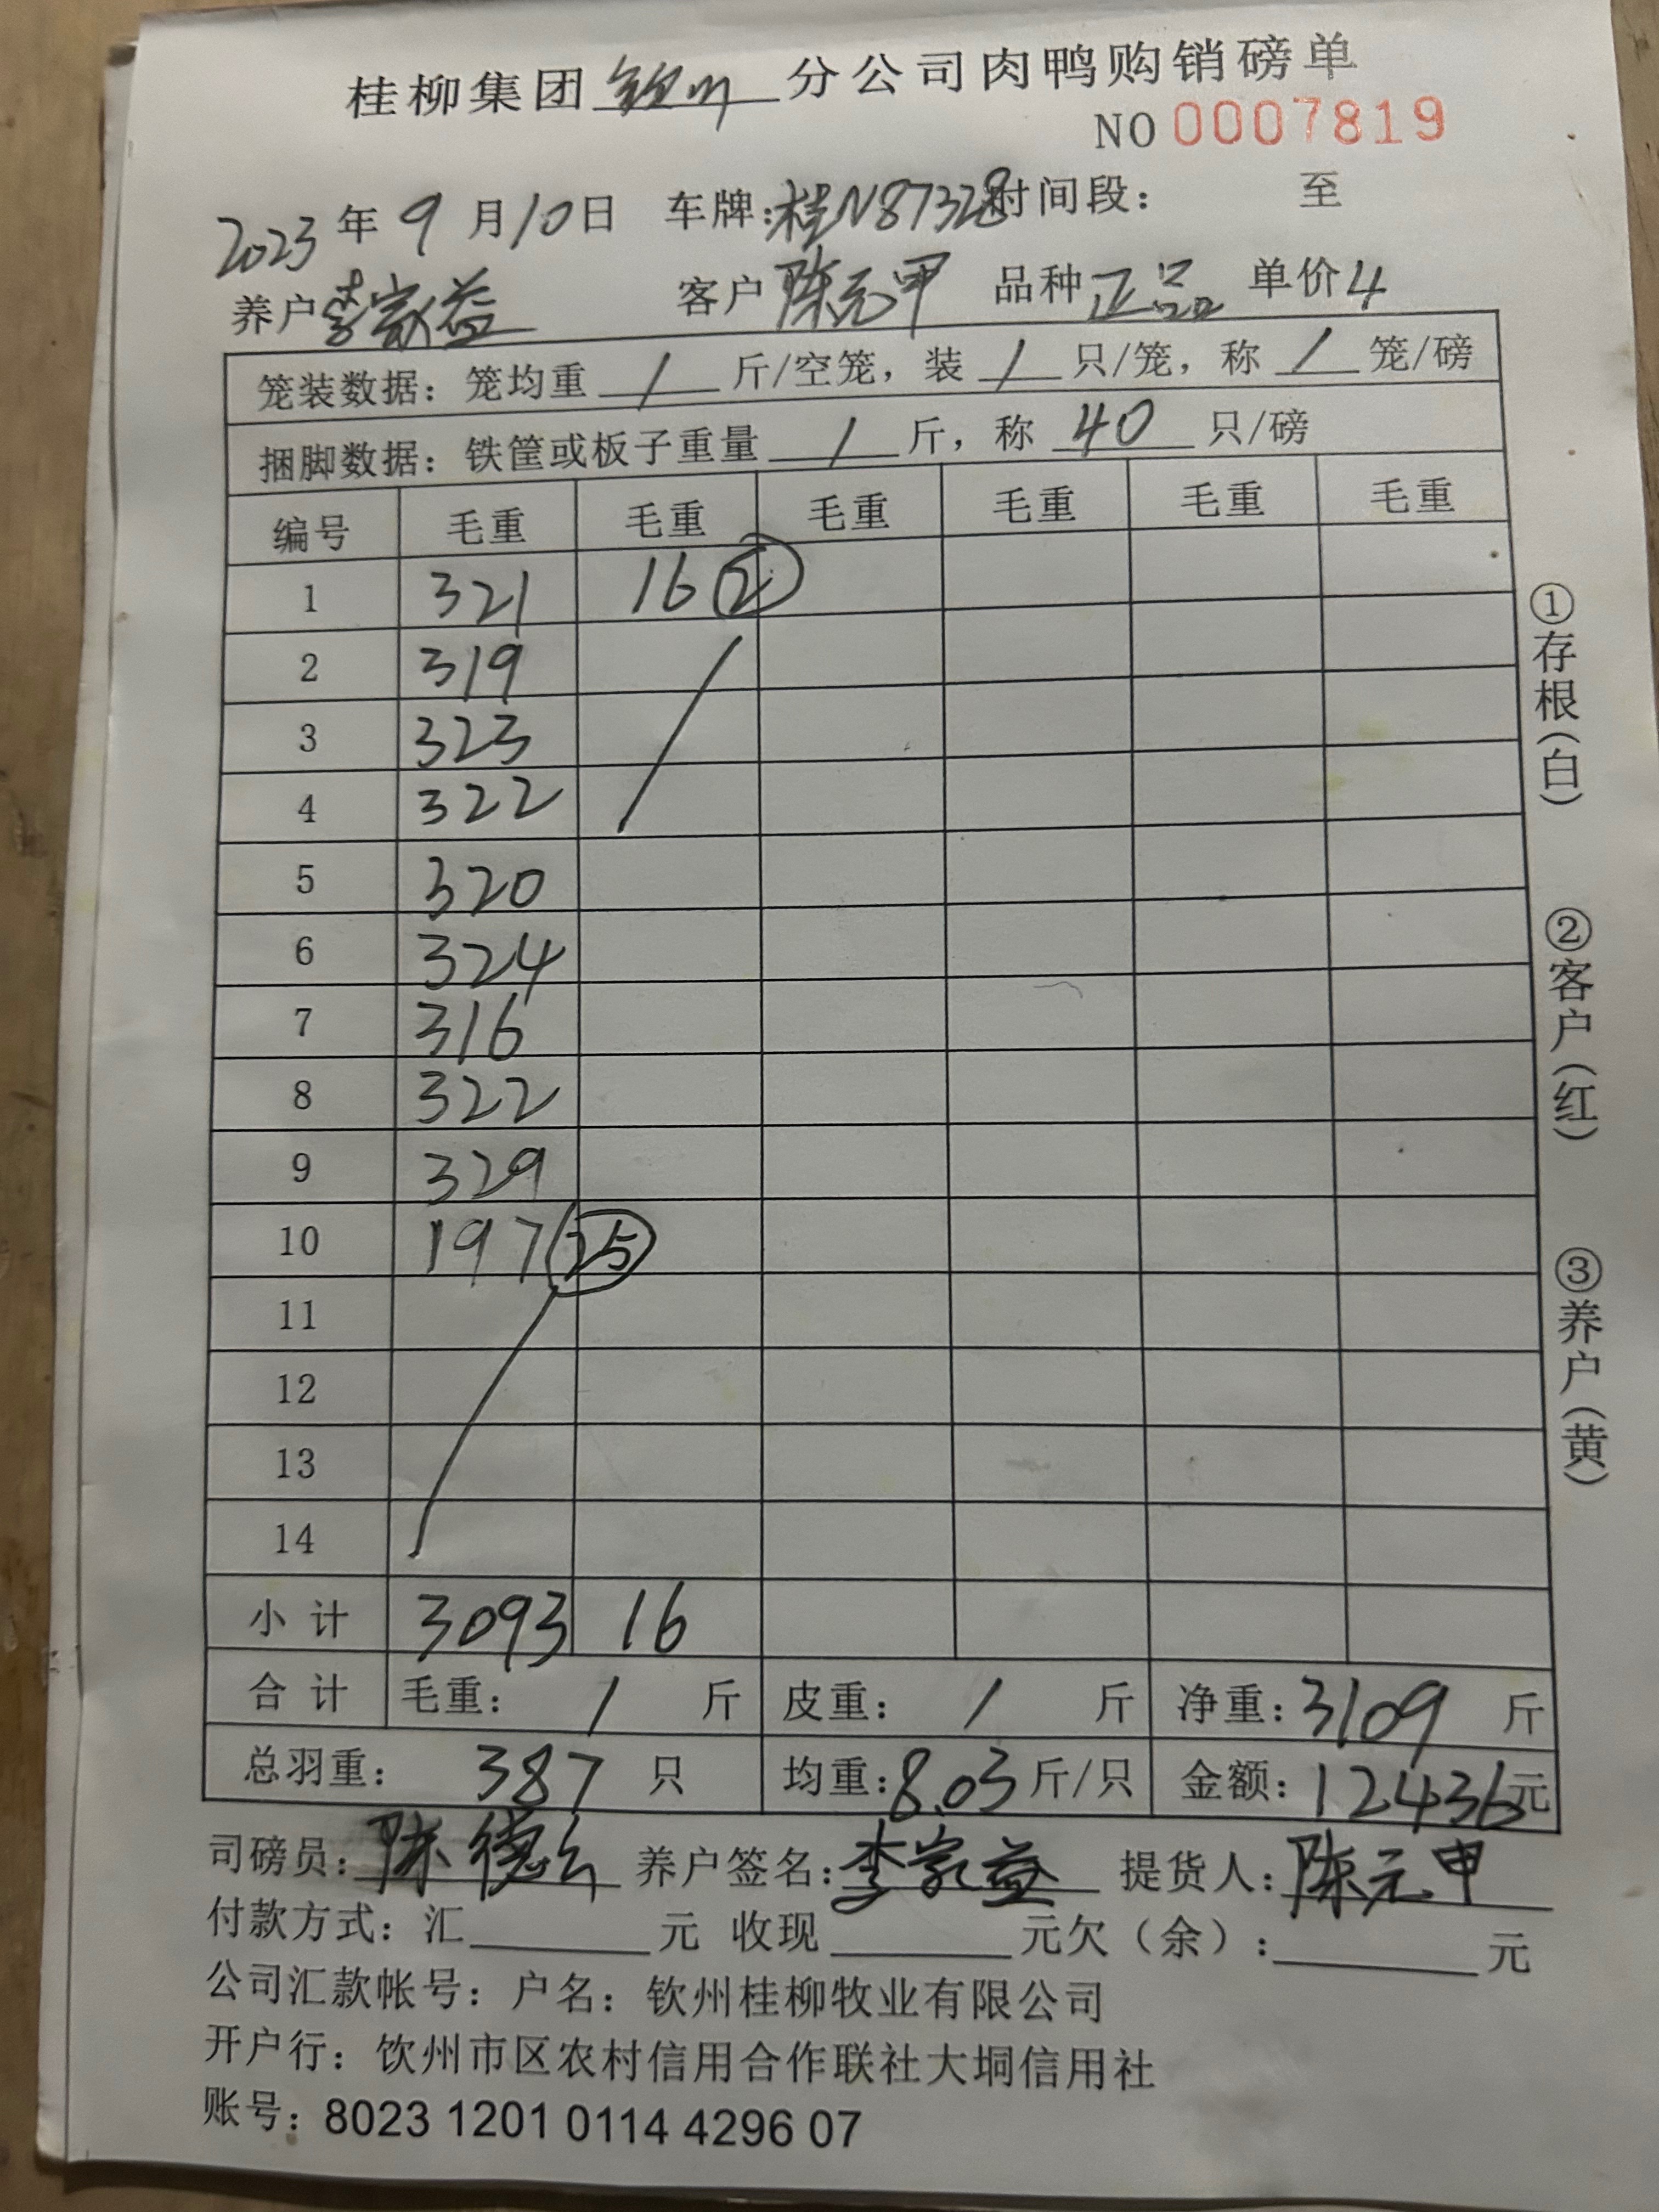 桂柳集团钦州分公司肉鸭购销磅单
NO 0007819
2023年9月10日 车牌:桂N87328时间段: 至
养户李家益 客户陈元甲 品种正品 单价4
笼装数据: 笼均重 / 斤/空笼, 装 / 只/笼, 称 / 笼/磅
捆脚数据: 铁筐或板子重量 / 斤, 称 40 只/磅
编号 毛重 毛重 毛重 毛重 毛重 毛重
1 321 16 ②
2 319
3 323
4 322
5 320
6 324
7 316
8 322
9 329
10 197 ㉕
11
12
13
14
小计 3093 16
合计 毛重: / 斤 皮重: / 斤 净重: 3109 斤
总羽重: 387 只 均重: 8.03 斤/只 金额: 12436元
司磅员: 陈德 养户签名: 李家益 提货人: 陈元甲
付款方式: 汇 元 收现 元欠(余): 元
公司汇款帐号: 户名: 钦州桂柳牧业有限公司
开户行: 钦州市区农村信用合作联社大垌信用社
账号: 8023 1201 0114 4296 07
①存根(白)
②客户(红)
③养户(黄)